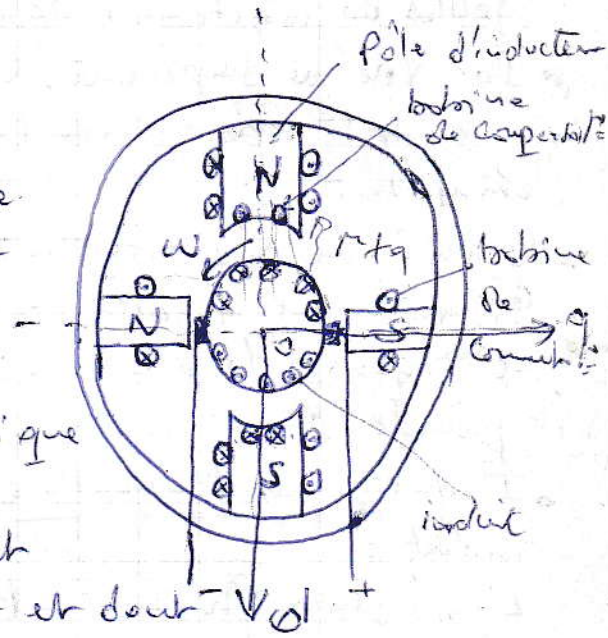 Pôle d'inducteur
bobine
de compensat°
N
ω
Mtq
bobine
de
commut°
N
S
q
O
S
induit
ique
t
et dont
-
+
d